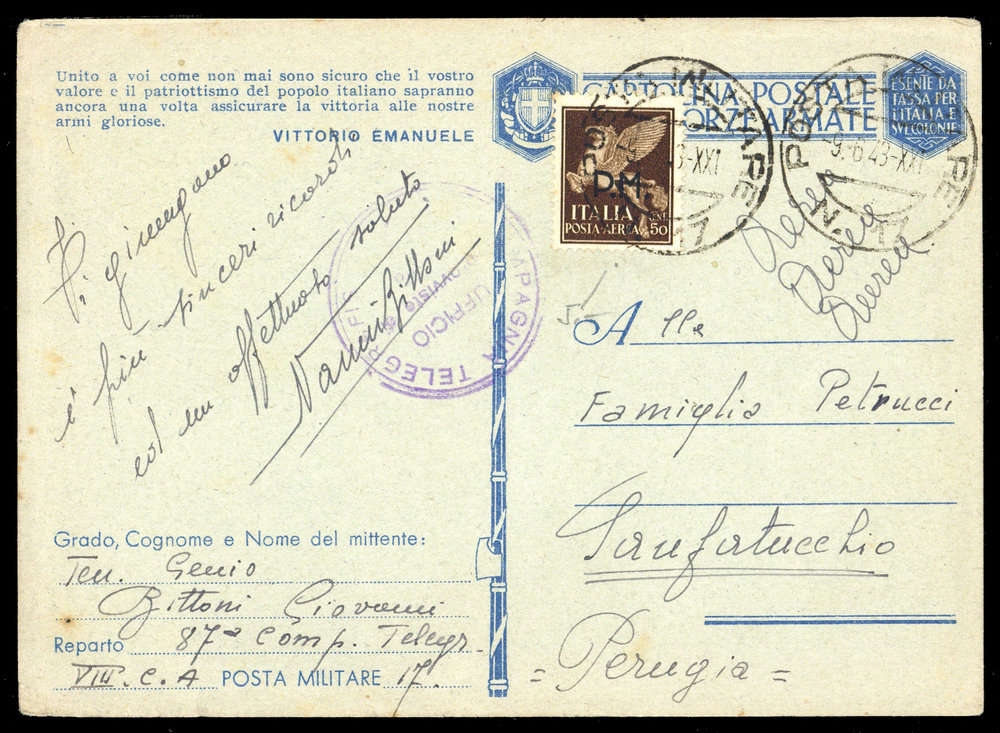 Unito a voi come non mai sono sicuro che il vostro
valore e il patriottismo del popolo italiano sapranno
ancora una volta assicurare la vittoria alle nostre
armi gloriose.
VITTORIO EMANUELE
CARTOLINA POSTALE
FORZE ARMATE
ESENTE DA
TASSA PER
L'ITALIA E
SUE COLONIE
P.M.
ITALIA CENT.
POSTA AEREA 50
-9.6.43-XXI
N. 17
Aerea
Aerea
Aerea
Vi giungano
i più sinceri ricordi
col mio affettuoso saluto.
Nanni Bittoni
COMPAGNIA TELEGRAFISTI
UFFICIO
Alla
Famiglia Petrucci
Sanfatucchio
= Perugia =
Grado, Cognome e Nome del mittente:
Ten. Genio
Bittoni Giovanni
Reparto 87ª Comp. Telegr.
VIII. C. A POSTA MILITARE 17.